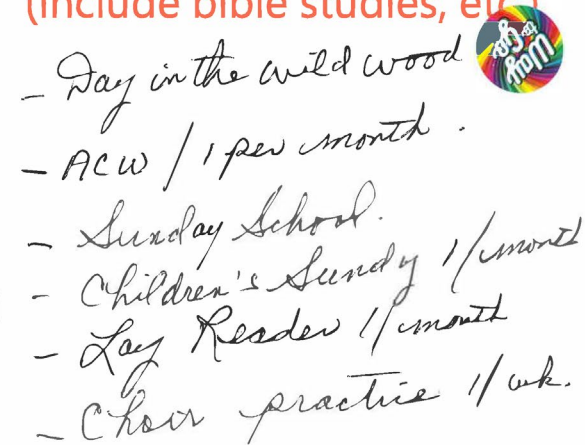 (include bible studies, etc.)
- Day in the wild wood
- ACW / 1 per month.
- Sunday School.
- Children's Sundy 1/month
- Lay Reader 1/month
- Choir practice 1/wk.